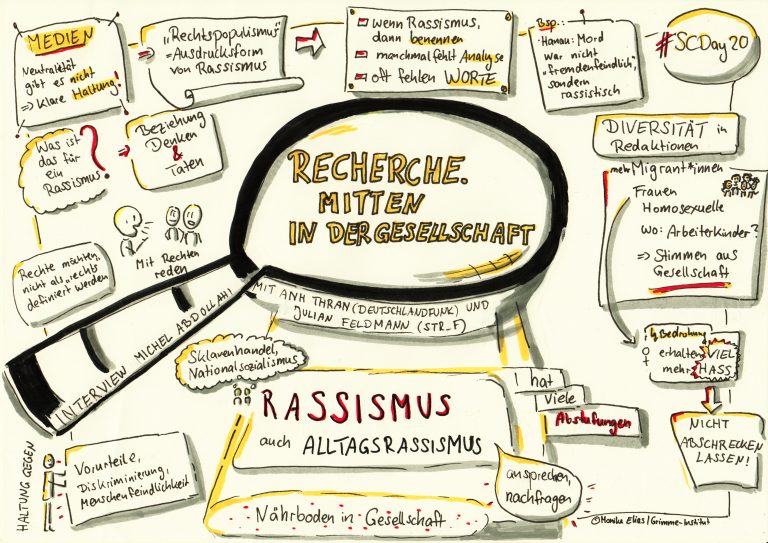 MEDIEN
Neutralität
gibt es nicht
⇒ Klare Haltung!
„Rechtspopulismus"
= Ausdrucksform
von Rassismus
wenn Rassismus,
dann benennen
manchmal fehlt Analyse
oft fehlen WORTE
Bsp.:
Hanau: Mord
war nicht
„fremdenfeindlich",
sondern
rassistisch
#SCDay20
Was ist
das für
ein
Rassismus?
⇒ Beziehung
Denken
&
Taten
RECHERCHE.
MITTEN
IN DER GESELLSCHAFT
DIVERSITÄT in
Redaktionen
mehr Migrant*innen
Frauen
Homosexuelle
Wo: Arbeiterkinder?
⇒ Stimmen aus
Gesellschaft
Mit Rechten
reden
Rechte möchten
nicht als „rechts"
definiert werden
INTERVIEW MICHEL ABDOLLAHI
MIT ANH THRAN (DEUTSCHLANDFUNK) UND
JULIAN FELDMANN (STR_F)
Bedrohung
erhalten VIEL
mehr HASS
NICHT
ABSCHRECKEN
LASSEN!
Sklavenhandel,
Nationalsozialismus
RASSISMUS
auch ALLTAGSRASSISMUS
hat
viele
Abstufungen
ansprechen,
nachfragen
Nährboden in Gesellschaft
HALTUNG GEGEN
Vorurteile,
Diskriminierung,
Menschenfeindlichkeit
©Monika Elias/Grimme-Institut